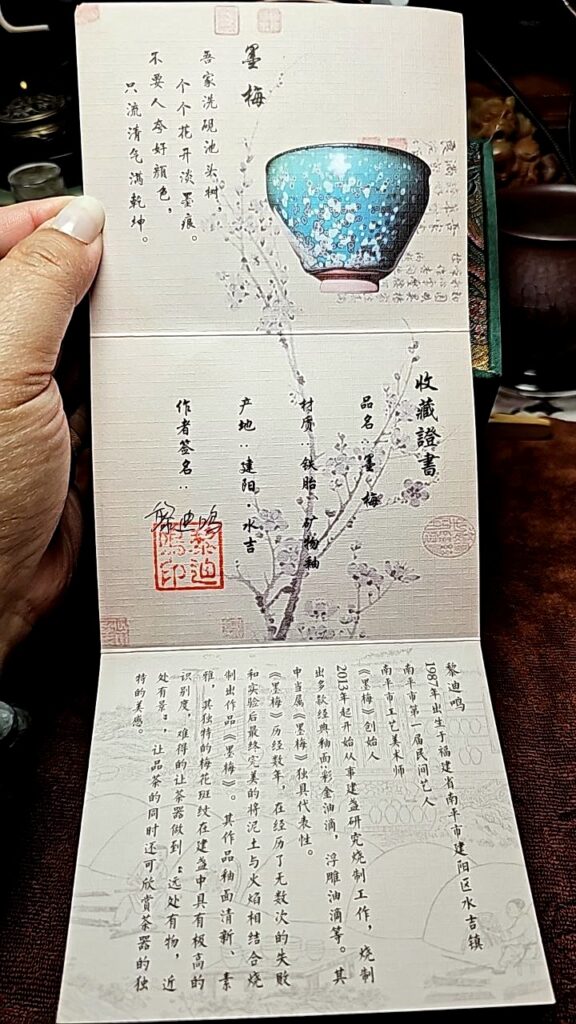 墨梅
吾家洗砚池头树，
个个花开淡墨痕。
不要人夸好颜色，
只流清气满乾坤。
收藏證書
品名：墨梅
材质：铁胎·矿物釉
产地：建阳·水吉
作者签名：黎迪鸣
黎迪鸣印
黎迪鸣
1987年出生于福建省南平市建阳区水吉镇
南平市第一届民间艺人
南平市工艺美术师
《墨梅》创始人
2013年起开始从事建盏研究烧制工作，烧制
出多款经典釉面:彩金油滴，浮雕油滴等。其
中当属《墨梅》独具代表性。
《墨梅》历经数年，在经历了无数次的失败
和实验后最终完美的将泥土与火焰相结合烧
制出作品《墨梅》。其作品釉面清新、素
雅，其独特的梅花斑纹在建盏中具有极高的
识别度，难得的让茶器做到“远处有物，近
处有景”，让品茶的同时还可欣赏茶器的独
特的美感。